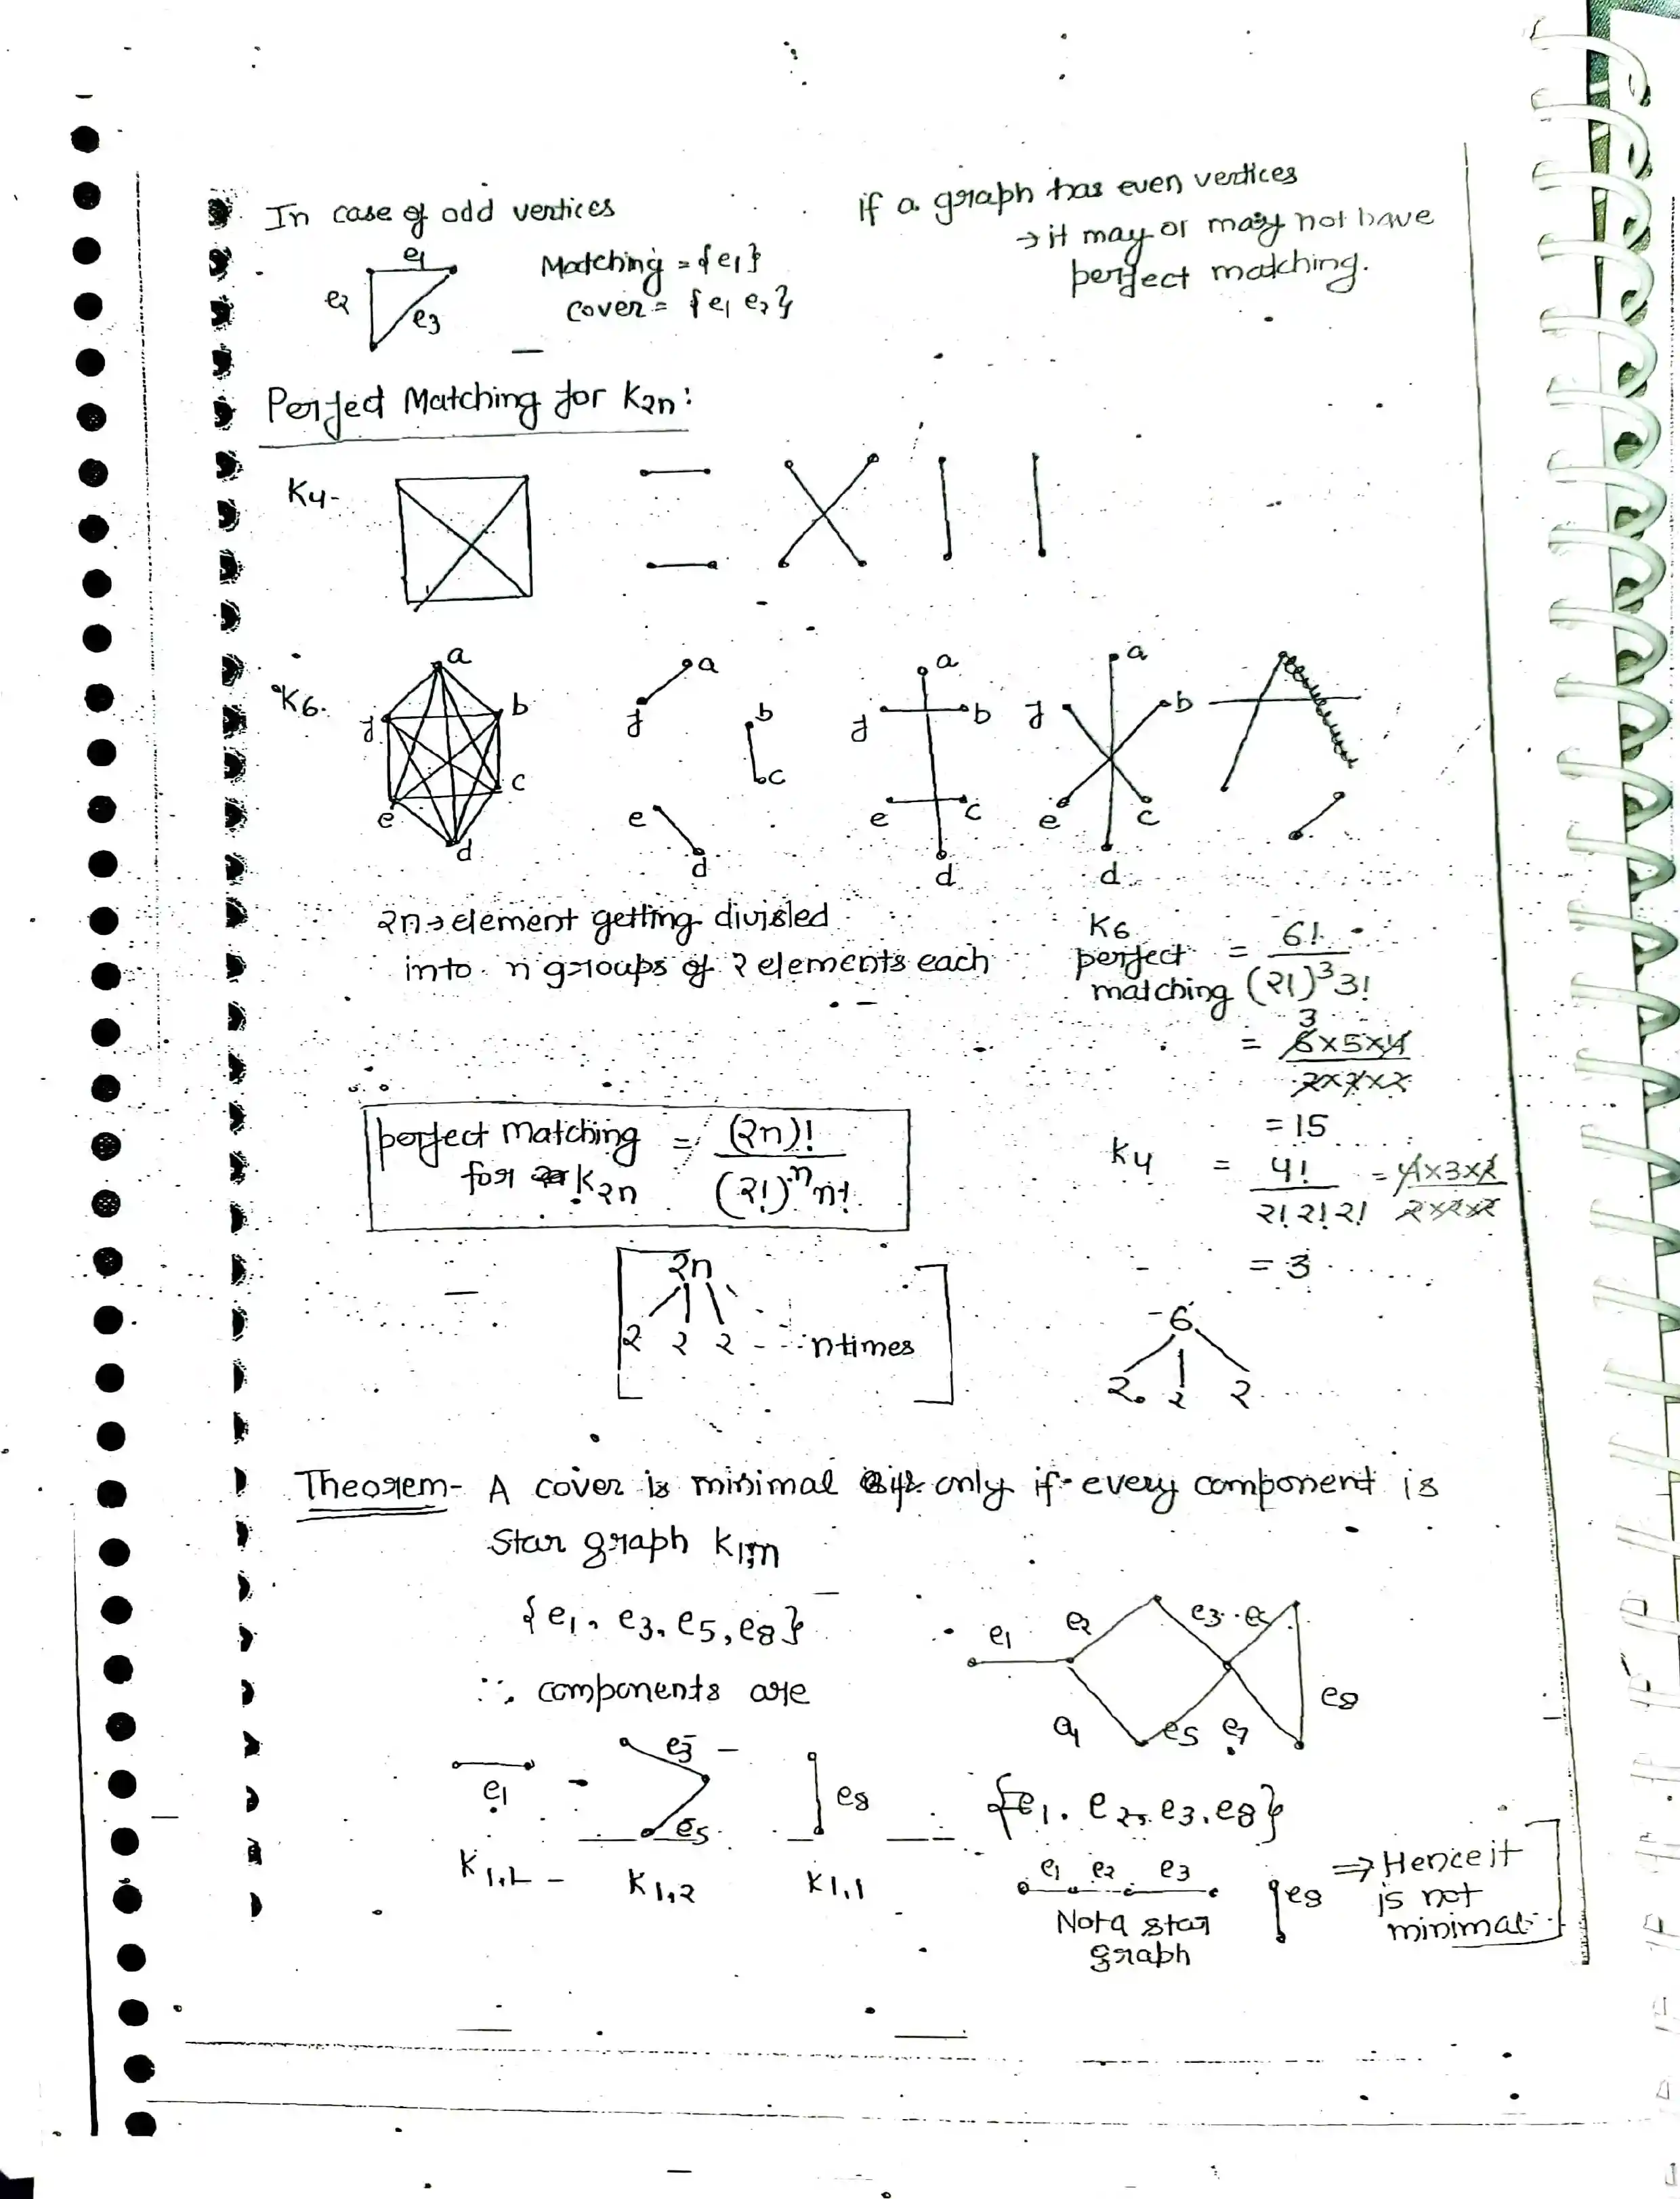 In case of odd vertices
e1
e2
e3
Matching = {e1}
Cover = {e1 e2}
if a graph has even vertices
→ it may or may not have
perfect matching.
Perfect Matching for K2n:
K4-
K6.
a
b
c
d
e
f
a
f
b
c
e
d
a
f
b
e
c
d
a
f
b
e
c
d
2n→element getting divided
into n groups of 2 elements each
K6
perfect matching = 6! / (2!)^3 3!
3
= 6x5x4 / 2x2x2
= 15
perfect Matching for K2n = (2n)! / (2!)^n n!
K4 = 4! / 2! 2! 2! = 4x3x2 / 2x2x2
= 3
2n
2 2 2 - - - n times
6
2 2 2
Theorem- A cover is minimal iff only if every component is
Star graph K1,n
{e1, e3, e5, e8}
∴ components are
e1
e2
e3
e5
e7
e8
e1
K1,1
e3
e5
K1,2
e8
K1,1
{e1, e2, e3, e8}
e1 e2 e3
Not a star
graph
e8
⇒ Hence it
is not
minimal